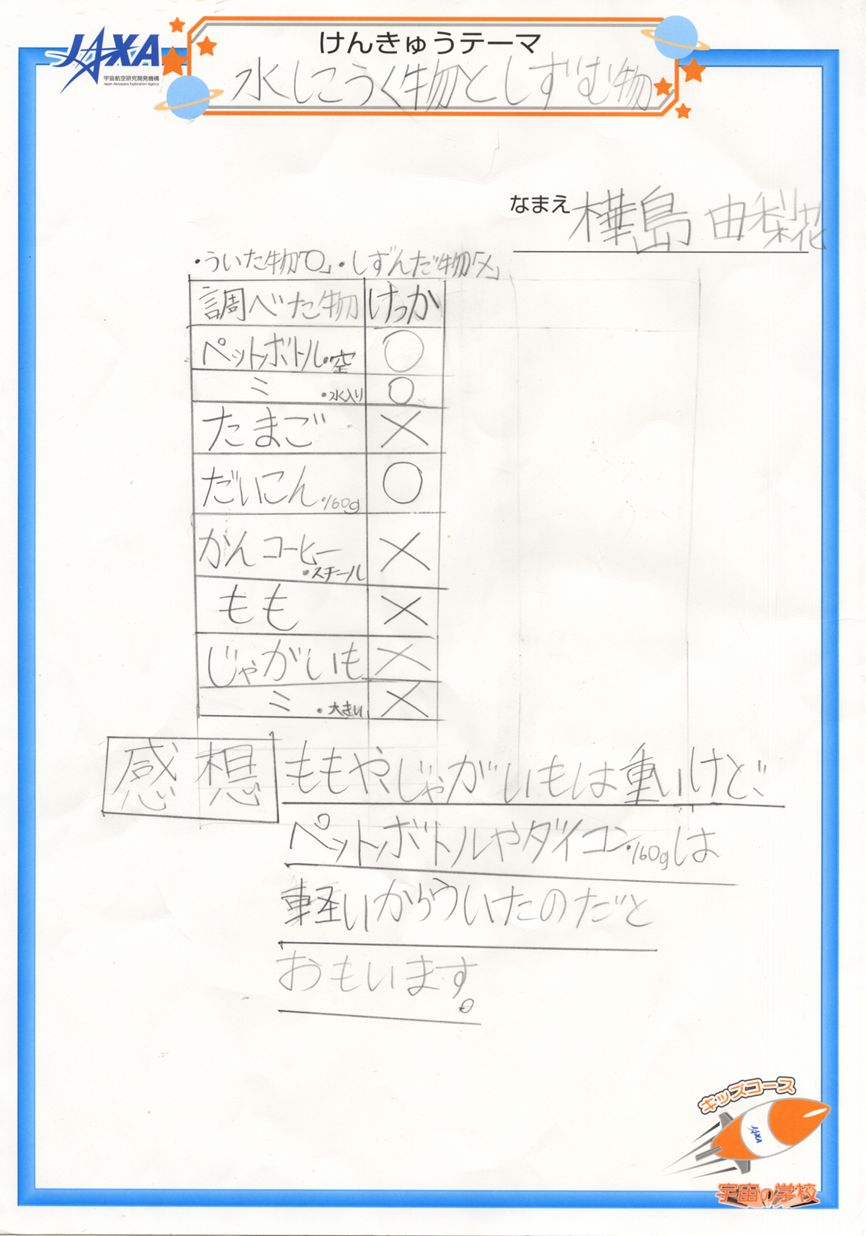 JAXA
宇宙航空研究開発機構
Japan Aerospace Exploration Agency
けんきゅうテーマ
水にうく物としずむ物
なまえ 樺島 由梨花
・ういた物「○」・しずんだ物「×」
調べた物 けっか
ペットボトル・空 ○
〃 ・水入り ○
たまご ×
だいこん・160g ○
かんコーヒー・スチール ×
もも ×
じゃがいも ×
〃 ・大きい ×
感想
ももや、じゃがいもは重いけど、
ペットボトルやダイコン・160gは
軽いからういたのだと
おもいます。
キッズコース
JAXA
宇宙の学校